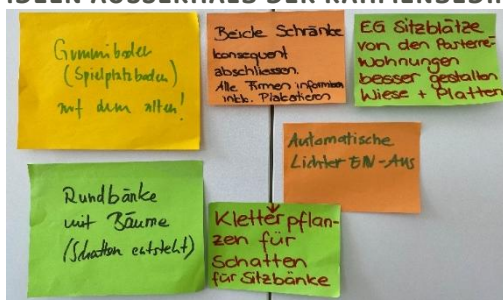 IDEEN AUSSERHALB DER RAHMENBEDIN
Gummiboden
(Spielplatzboden)
auf dem alten!
Beide Schränke
konsequent
abschliessen.
Alle Firmen informieren
inkl. Plakatieren
EG Sitzblätze
von den Parterre-
wohnungen
besser gestalten
Wiese + Platten
Automatische
Lichter EIN-Aus
Rundbänke
mit Bäume
(Schatten entsteht)
Kletterpflan-
zen für
Schatten
für Sitzbänke